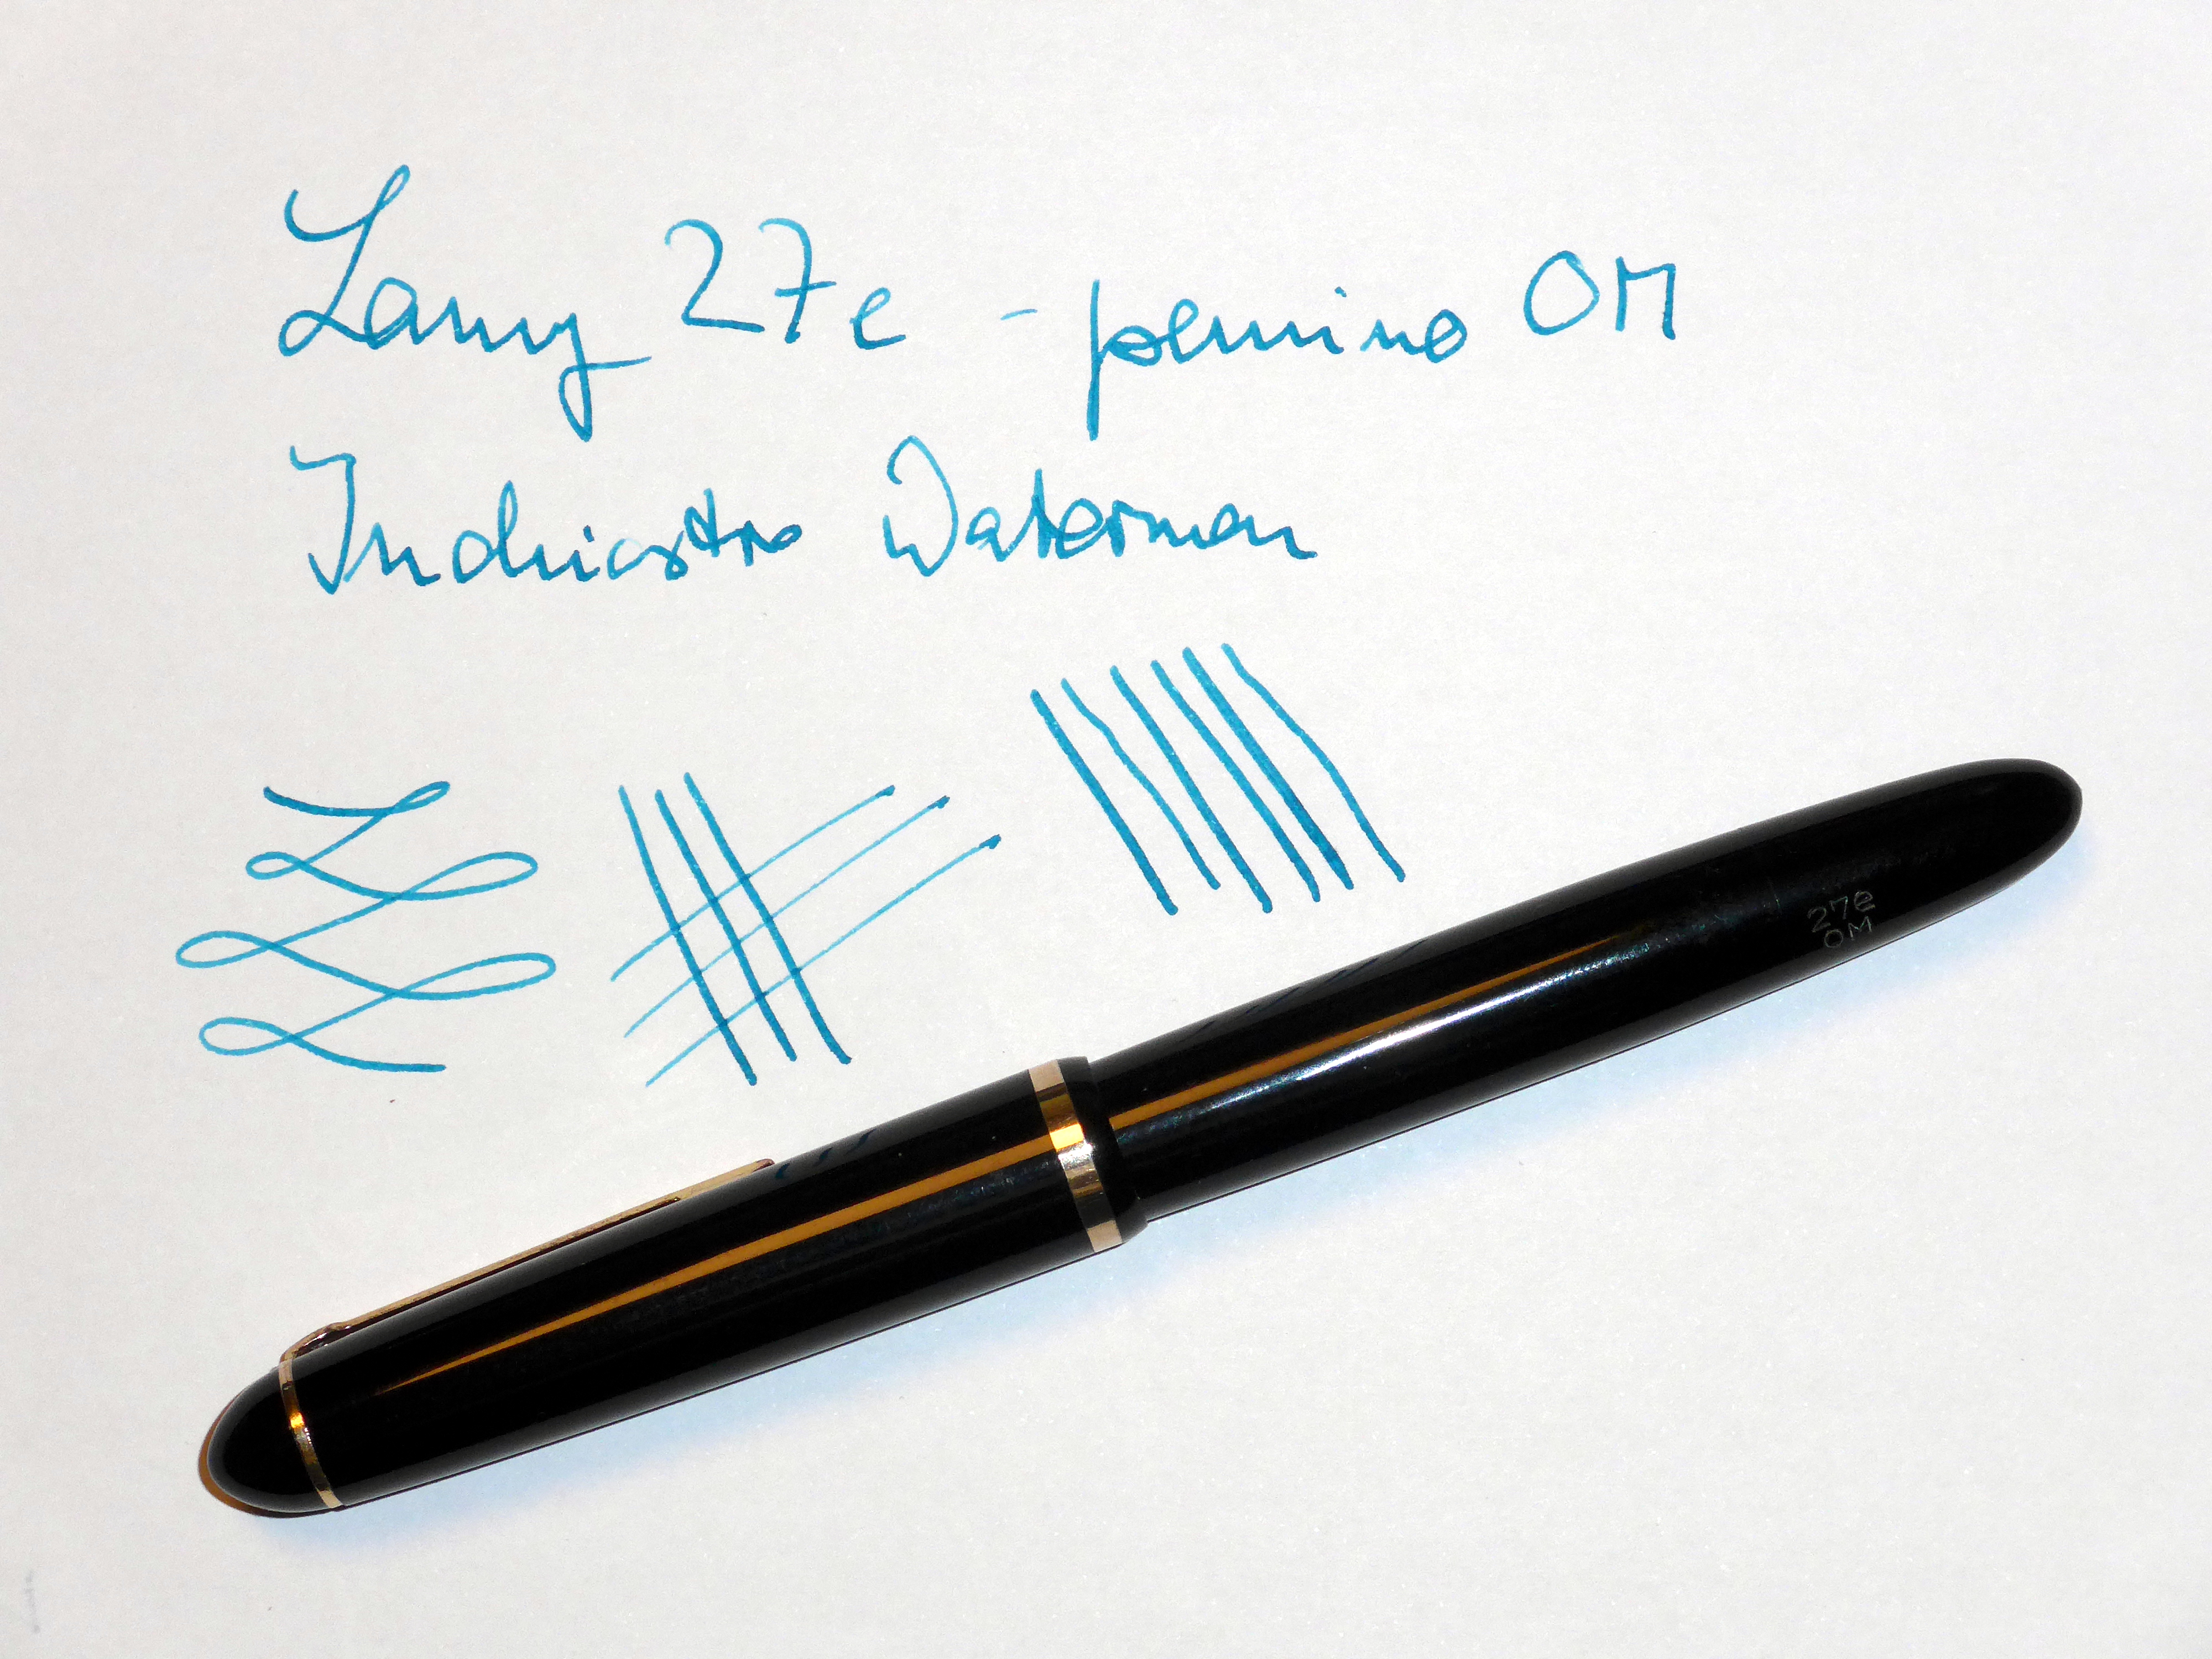 Lamy 27e - pennino OM
Inchiostro Waterman
27e
OM